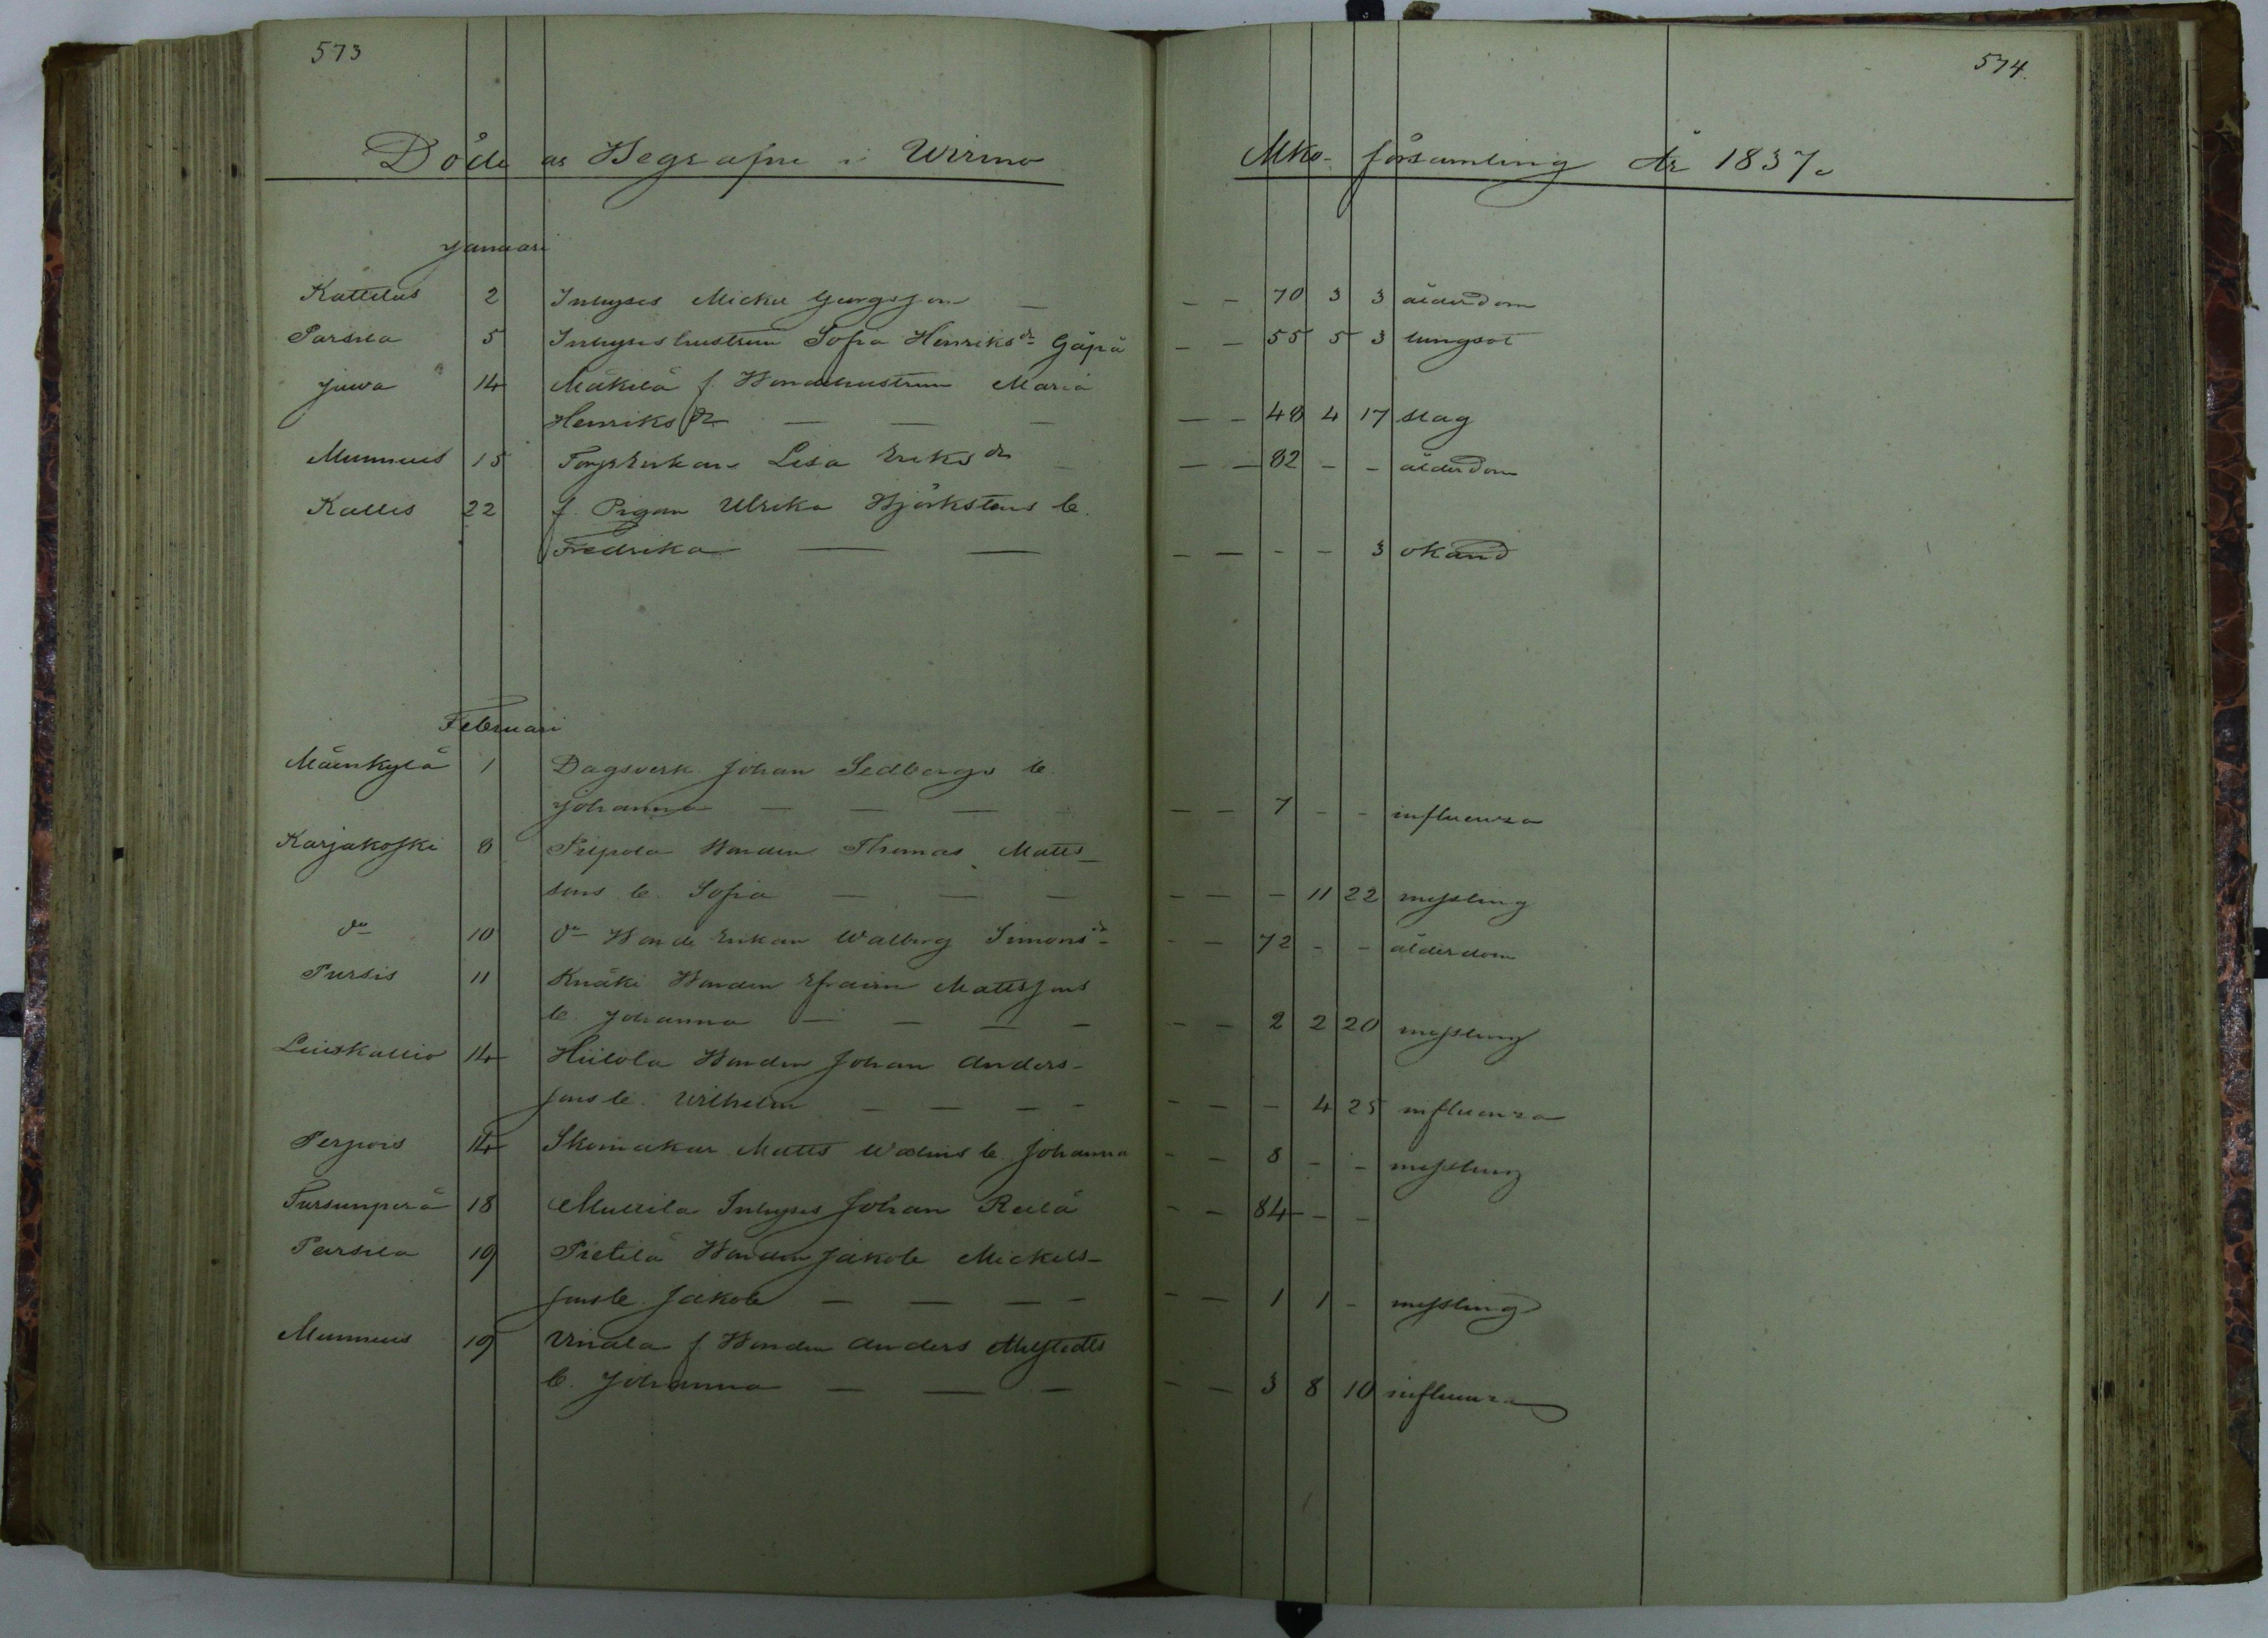 573
574.
Döde as Begrafne i Wirmo Mko- församling År 1837.
Januari
Kattelus 2 Inhyses Mickel Georgsson — — — 70 3 3 ålderdom
Parsila 5 Inhyseshustrun Sofia Henriksdr Gäpä — — 55 5 3 lungsot
Juva 14 Mäkilä f. Bondehustrun Maria
Henriksdr — — — — — 48 4 17 slag
Munnuis 15 Lisa Eriksdr — — — 82 — — ålderdom
Kallis 22 f. Pigan Ulrika Björkstens b.
Fredrika — — — — — — 3 okänd
Februari
Mäenkylä 1 Dagsverk. Johan Sedbergs b.
Johanna — — — — — 7 — — influenza
Karjakoski 8 Piepola Bonden Thomas Matts-
sons b. Sofia — — — — — — 11 22 messling
do 10 do Bonde Enkan Walborg Simonsdr — — 72 — — ålderdom
Pursis 11 Knäki Bonden Efraim Mattssons
b. Johanna — — — — — — 2 2 20 messling
Leinskallio 14 Hiilola Bonden Johan Anders-
sons b. Wilhelm — — — — — — — 4 25 influenza
Perpois 14 Skomakar Matts b. Johanna — — 8 — — messling
Tursunperä 18 Mullila Inhyses Johan Reilä — — 84 — —
Parsila 19 Pietilä Bonden Jakob Mickels-
sons b. Jakob — — — — — — 1 1 — messling
Munnuis 19 Uinala f. Bonden Anders
b. Johanna — — — — — 3 8 10 influenza